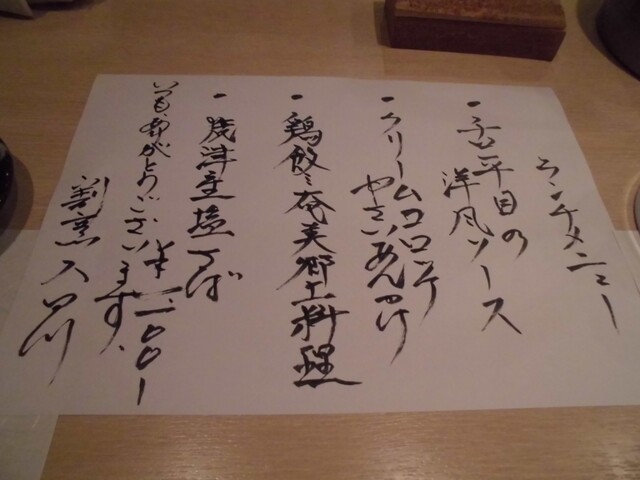 ランチメニュー
一 舌平目の
洋風ソース
一 クリームコロッケ
やさいあんかけ
一 鶏飯 奄美郷土料理
一 焼津産塩さば
いつもありがとうございます、
割烹